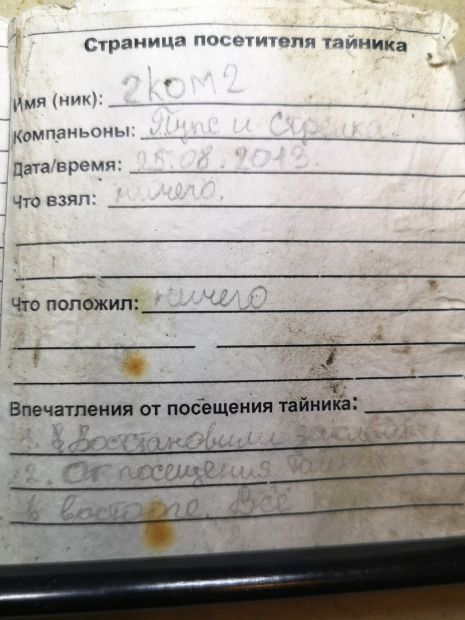 Страница посетителя тайника
Имя (ник): 2kom2
Компаньоны: Пупс и Стрелка.
Дата/время: 25.08.2013.
Что взял: ничего.
Что положил: ничего
Впечатления от посещения тайника:
1. Восстановили
2. От посещения
в восторге. Всё